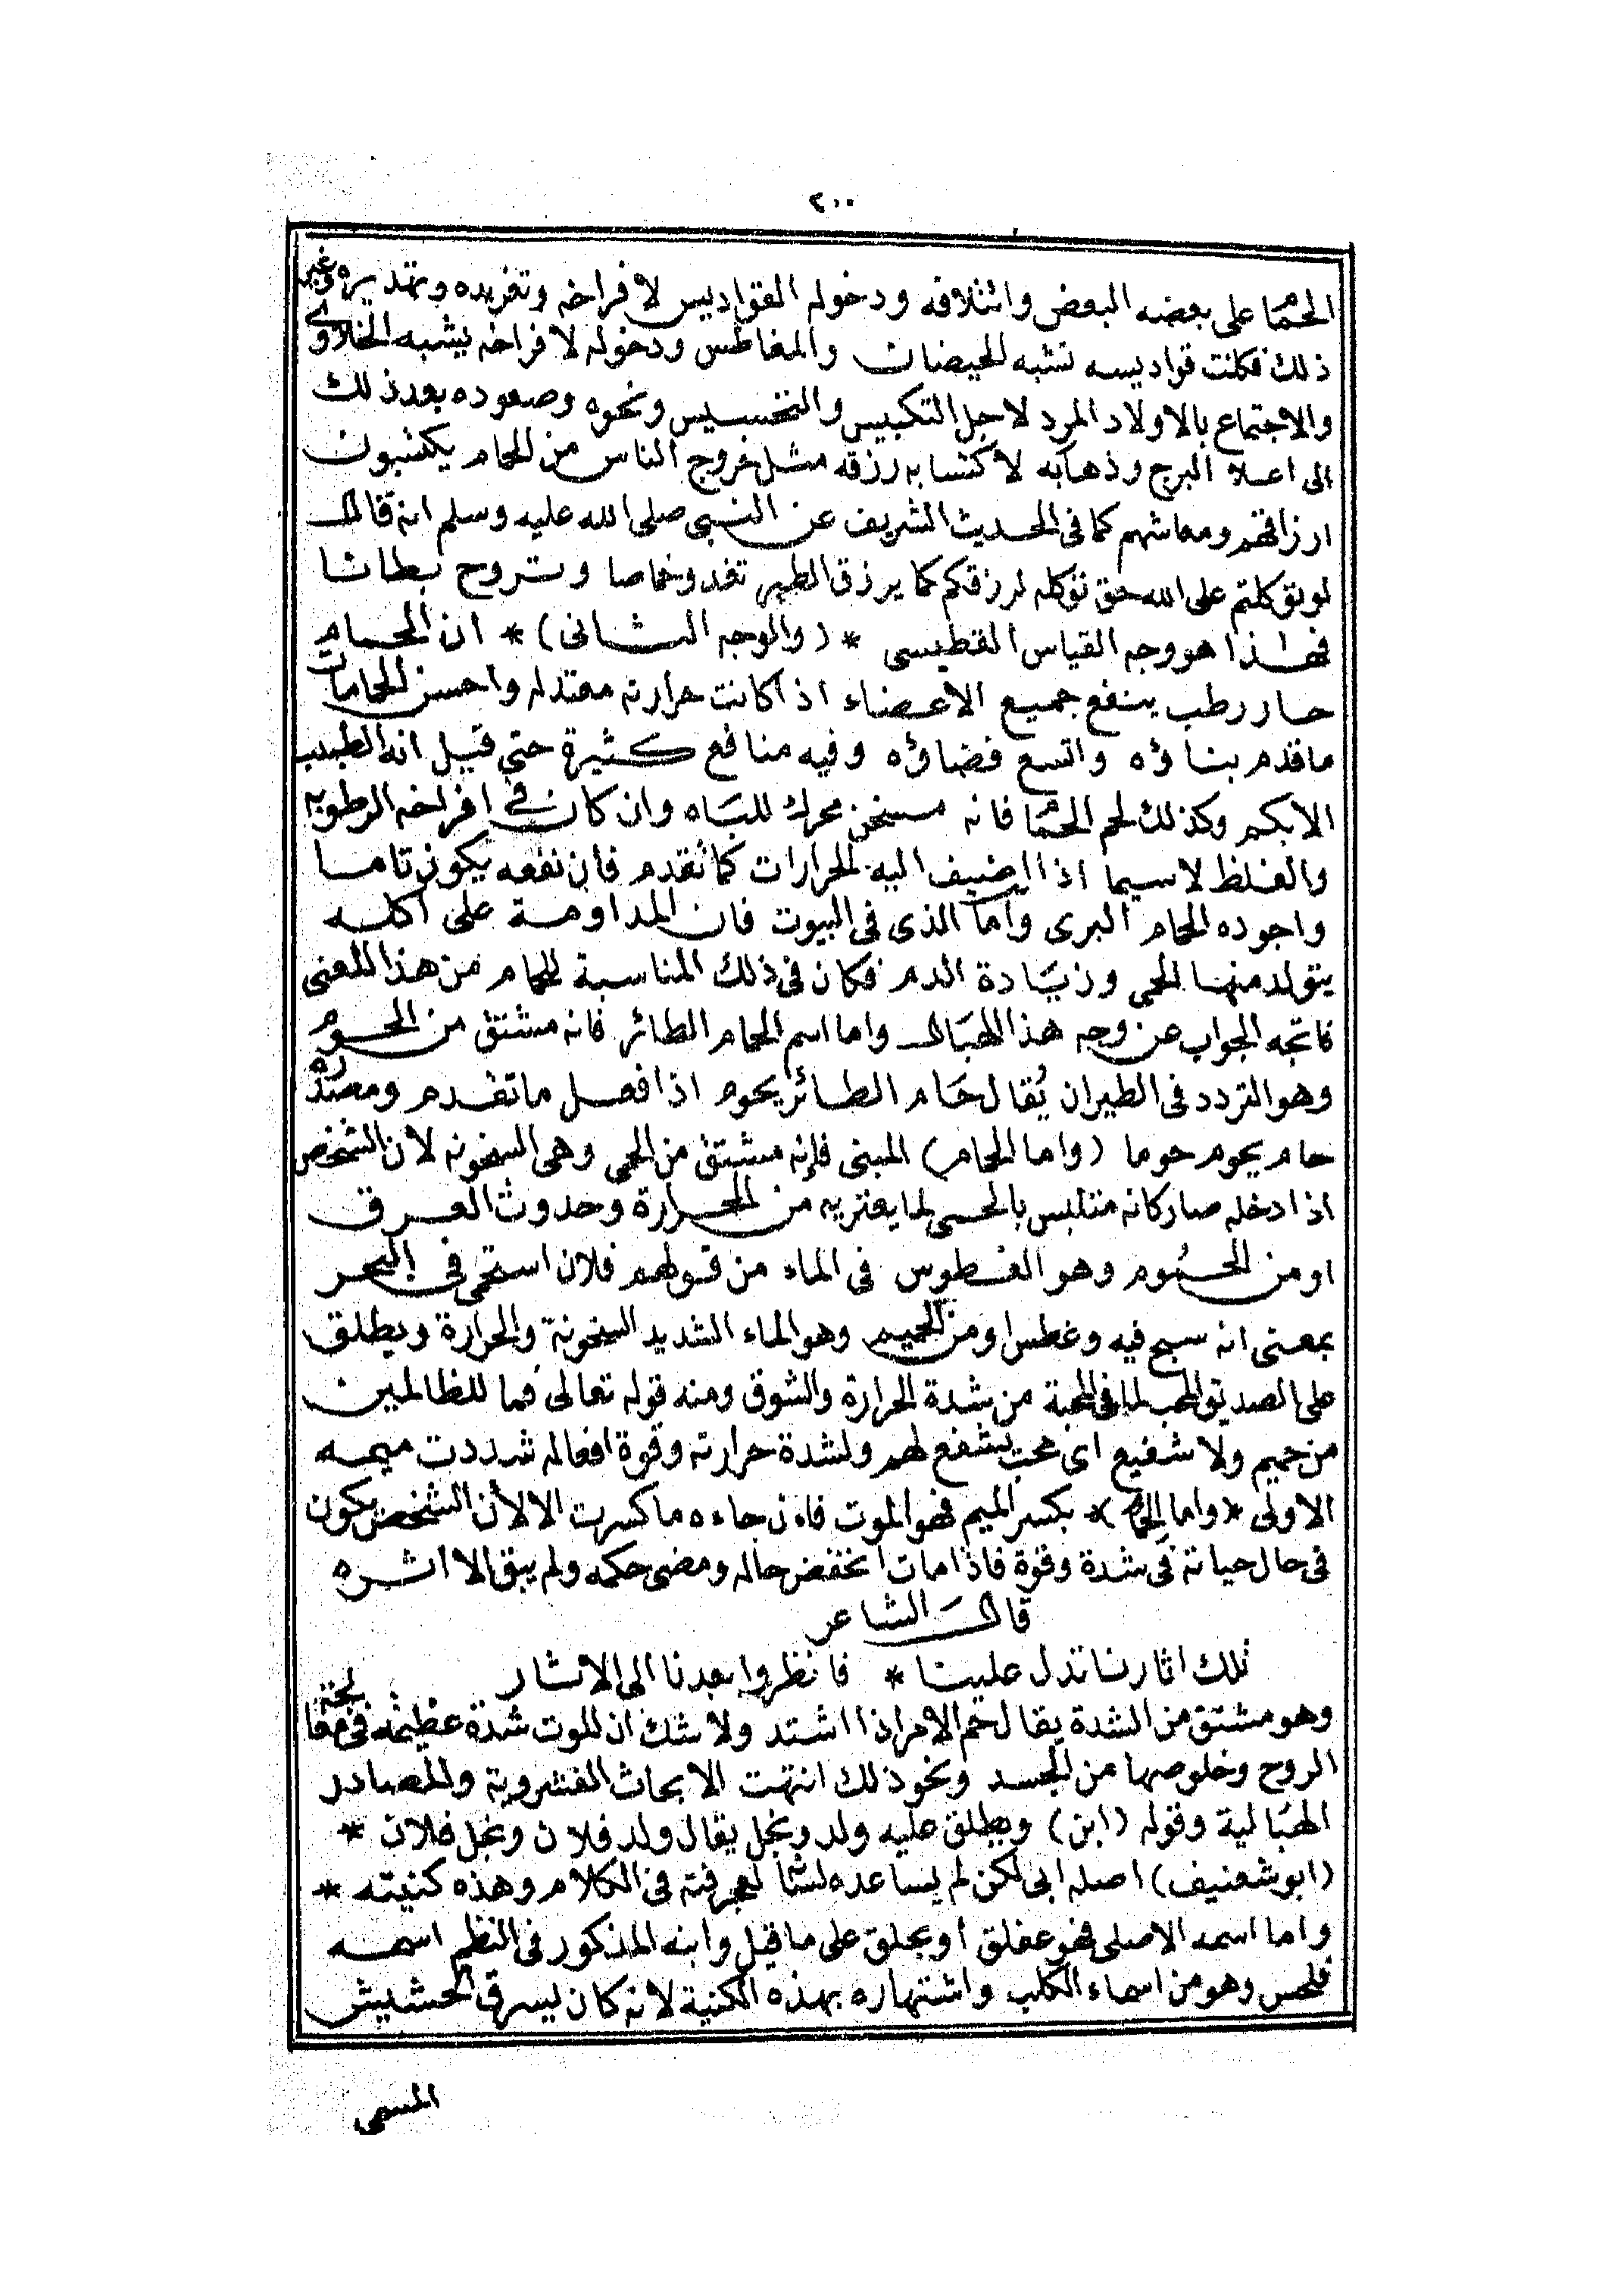 ٢٠٠
الحمام على بعضه البعض وائتلافه ودخوله القواديس لافراخه وتغريده وتهديره وغير
ذلك فكانت قواديسه تشبه الحيضان والمغاطس ودخوله لافراخه يشبه الخلاوى
والاجتماع بالاولاد المرد لاجل التكبيس والتحسيس ونحوه وصعوده بعد ذلك
الى اعلا البرج وذهابه لاكتسابه رزقه مثل خروج الناس من الحمام يكتسبون
ارزاقهم ومعاشهم كما فى الحديث الشريف عن النبى صلى الله عليه وسلم انه قال
لو توكلتم على الله حق توكله لرزقكم كما يرزق الطير تغدو خماصا وتروح بطانا
فهذا هو وجه القياس الفطيسى * (والوجه الثانى) * ان الحمام
حار رطب ينفع جميع الاعضاء اذا كانت حرارته معتدله واحسن الحمامات
ما قدم بناؤه واتسع فضاؤه وفيه منافع كثيرة حتى قيل انه الطبيب
الابكم وكذلك لحم الحمام فانه مسخن محرك للباه وان كان فى افراخه الرطوبه
والغلظ لاسيما اذا اضيف اليه الحرارات كما تقدم فان نفعه يكون تاما
واجوده الحمام البرى واما الذى فى البيوت فان المداومة على اكله
يتولد منها الحمى وزيادة الدم فكان فى ذلك المناسبة للحمام من هذا المعنى
فاتجه الجواب عن وجه هذا الهبال واما اسم الحمام الطائر فانه مشتق من الحوم
وهو التردد فى الطيران يُقال حَام الطائر يحوم اذا فعل ما تقدم ومصدره
حام يحوم حوما (واما الحمام) المبنى فإنه مشتق من الحمى وهى السخونه لان الشخص
اذا دخله صار كانه متلبس بالحمى لما يعتريه من الحرارة وحدوث العرق
او من الحُموم وهو الغطوس فى الماء من قولهم فلان استحمى فى البحر
بمعنى انه سبح فيه وغطس او من الحميم وهو الماء الشديد السخونة والحرارة ويطلق
على الصديق المحب لما فى المحبة من شدة الحرارة والشوق ومنه قوله تعالى فما للظالمين
من حميم ولا شفيع اى محب يشفع لهم ولشدة حرارته وقوة افعاله شددت ميمه
الاولى * (واما الحِمام) * بكسر الميم فهو الموت فاءن حاءه ما كسرت الا لأن الشخص يكون
فى حال حياته فى شدة وقوة فاذا مات انخفض حاله ومضى حكمه ولم يبق الا اثره
قال الشاعر
تلك اثارنا تدل علينا * فانظروا بعدنا الى الاثار
وهو مشتق من الشدة يقال حم الامر اذا اشتد ولا شك ان للموت شدة عظيمه فى معالجة
الروح وخلوصها من الجسد ونحو ذلك انتهت الابحاث الفشروية والمصادر
الهبالية وقوله (ابن) ويطلق عليه ولد ونجل يقال ولد فلان ونجل فلان *
(ابو شعنيف) اصله ابى لكن لم يساعده لسانه لعجرفته فى الكلام وهذه كنيته *
واما اسمه الاصلى فهو عفلق او عجلق على ما قيل وابنه المذكور فى النظم اسمه
فلحس وهو من اسماء الكلب واشتهاره بهذه الكنية لانه كان يسرق الحشيش
المسمى